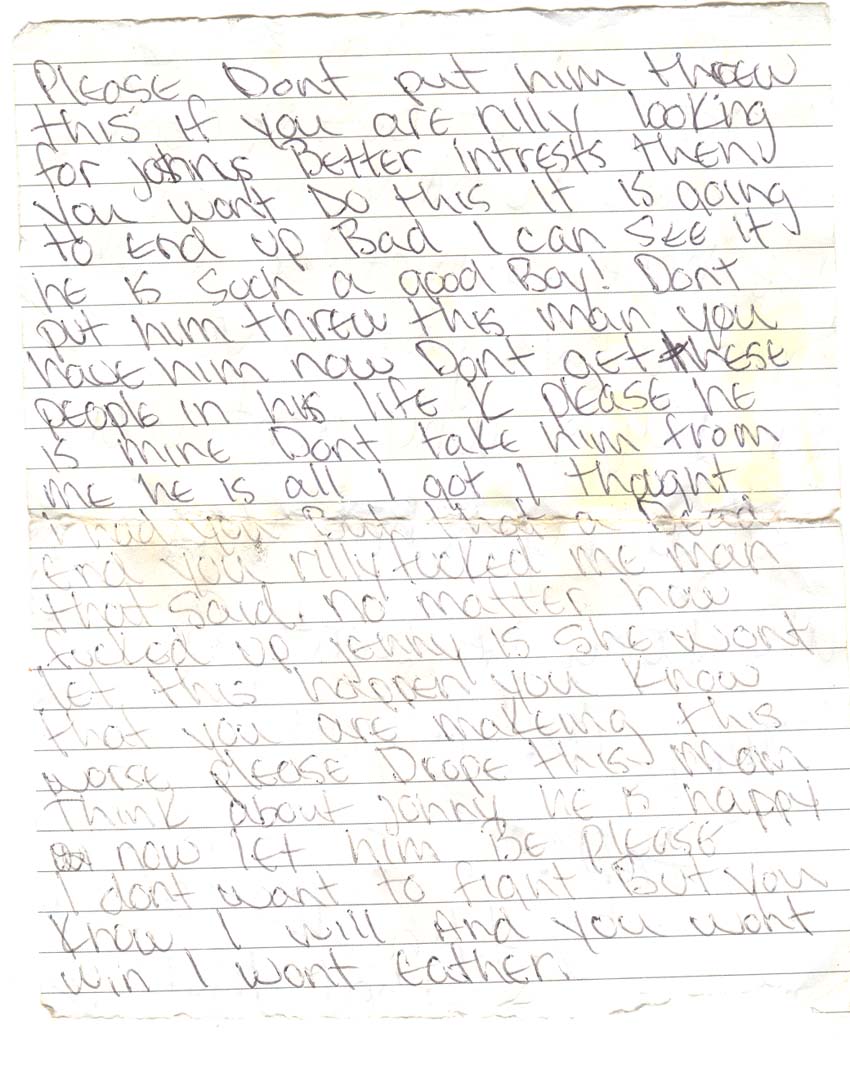 PLEASE Dont put him threw
this if you are rilly looking
for johnys BETTER intrests then
you wont Do this It is going
to End up Bad I can SEE it
hE is such a good Boy! Dont
put him threw this man you
havE him now Dont gEt thESE
pEoplE in his lifE K plEaSE hE
is minE Dont takE him from
mE hE is all I got I thought
I had you But that a DEad
End you rilly fucked mE man
that said. no matter how
fucked up jEnny is ShE wont
lEt this happEn you Know
that you arE makEing this
worse plEaSE DropE this Mom
Think about jonny hE is happy
now lEt him BE PlEaSE
I dont want to fight But you
Know I will And you wont
win I wont Eather.